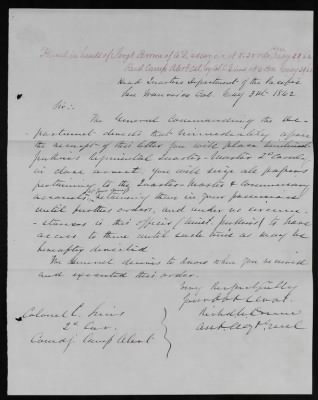 Head Quarters Department of the Pacific
San Francisco Cal. Augy 3d 1862
Sir:
The General Commanding the De-
partment directs that immediately upon
the receipt of this letter you will place Lieutenant
Jenkins Regimental Quarter-Master 2d Cavalry
in close arrest, you will seize all papers
pertaining to the Quarter Master & Commissary
accounts, retaining them in your possession
until further orders, and under no circum-
stances is this officer (Lieut Jenkins) to have
access to them until such time as may be
hereafter directed
The General desires to know when you received
and executed this order.
Very Respectfully
Your Obt Servt.
Asst Adjt Genl
Colonel C. Sims
2d Cav.
Comdg Camp Alert